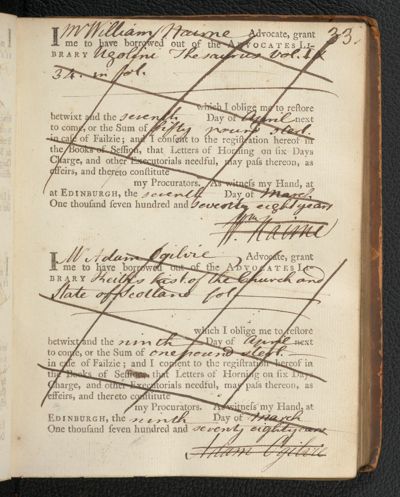 33.
I Mr William Nairne Advocate, grant
me to have borrowed out of the ADVOCATES LI-
BRARY Ugolini Thesaurus Vol. 1 &
3 &. in fol.
which I oblige me to restore
betwixt and the seventh Day of April next
to come, or the Sum of fifty pound sterl.
in case of Failzie; and I consent to the registration hereof in
the Books of Session, that Letters of Horning on six Days
Charge, and other Executorials needful, may pass thereon, as
effeirs, and thereto constitute
my Procurators. As witness my Hand, at
at EDINBURGH, the seventh Day of March
One thousand seven hundred and seventy eight years
Wm
W. Nairne
I Mr Adam Ogilvie Advocate, grant
me to have borrowed out of the ADVOCATES LI-
BRARY Keith's hist. of the Church and
State of Scotland fol.
which I oblige me to restore
betwixt and the ninth Day of April next
to come, or the Sum of one pound sterl.
in case of Failzie; and I consent to the registration hereof in
the Books of Session that Letters of Horning on six Days
Charge, and other Executorials needful, may pass thereon, as
effeirs, and thereto constitute
my Procurators. As witness my Hand, at
EDINBURGH, the ninth Day of March
One thousand seven hundred and seventy eight years
Adam Ogilvie